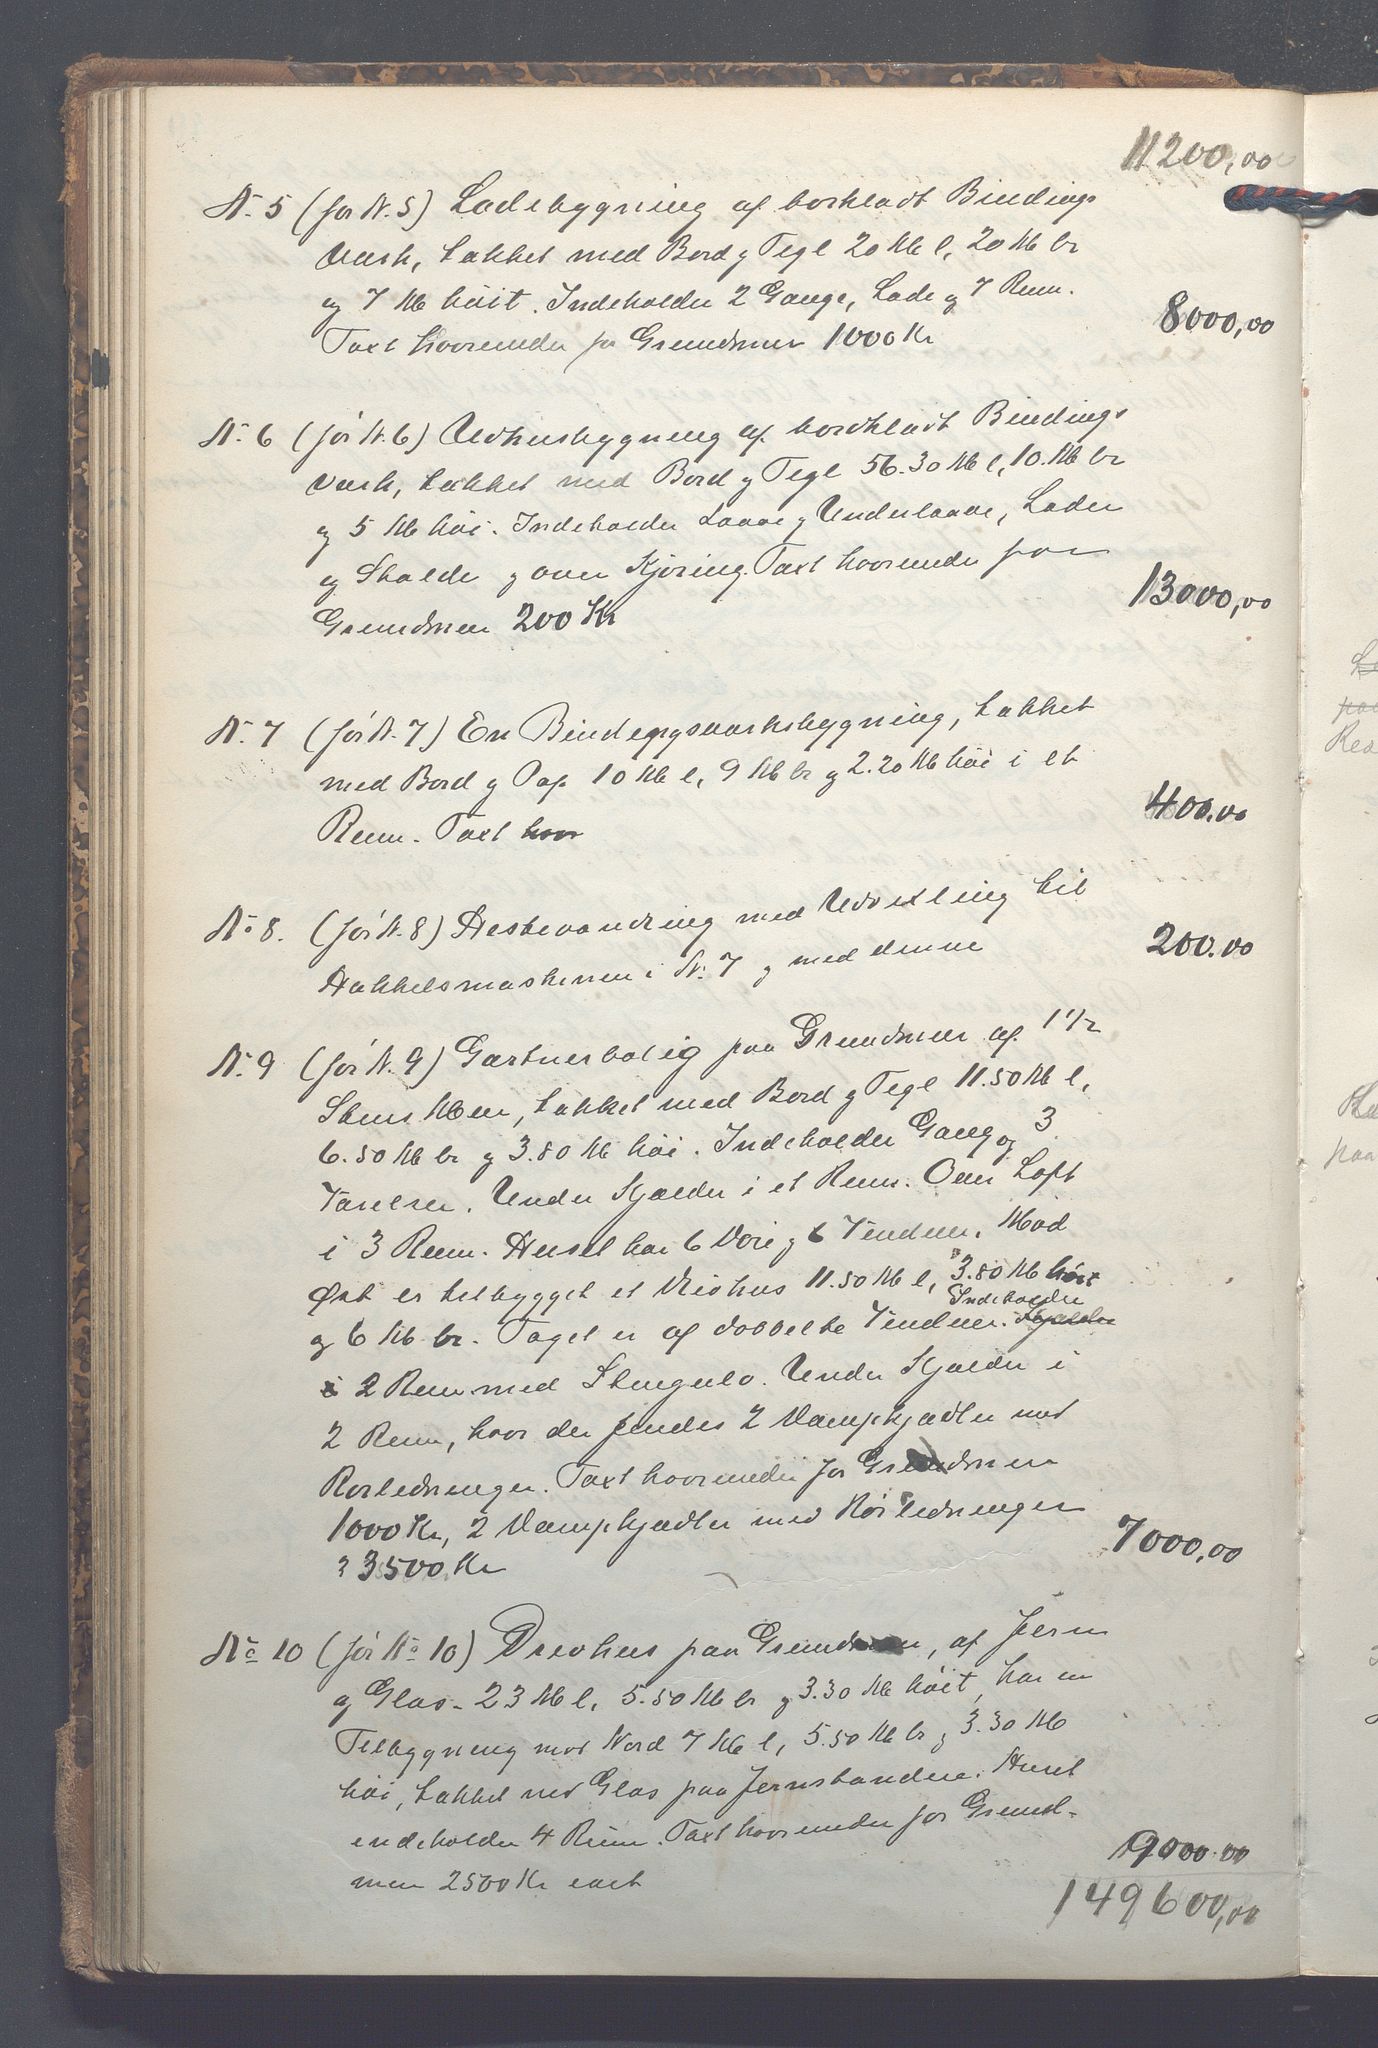 11200,00
No 5 (før N. 5) Ladebygning af bordklædt Bindings
værk, tækket med Bord og Tegl 20 M l, 20 M br
og 7 M höit. Indeholder 2 Gange, Lade og 7 Rum.
Taxt hvorunder for Grundmur 1000 Kr 8000,00
No 6 (før N. 6) Udhusbygning af bordklædt Bindings
værk, tækket med Bord og Tegl 56.30 M l, 10. M br
og 5 M höi. Indeholder Laave og Underlaave, Lader
og Stalde og over Kjøring. Taxt hvorunder for
Grundmur 200 Kr 13000,00
No 7 (før N. 7) En Bindingsværksbygning, tækket
med Bord og Pap 10 M l, 9 M br og 2.20 M höi i et
Rum. Taxt hvor 400.00
No 8. (før N. 8) Hestevandring med Udvexling til
Hakkelsmaskinen i No. 7 og med denne 200.00
No 9 (før N. 9) Gartnerbolig paa Grundmur af 1 1/2
Stens Mur, tækket med Bord og Tegl 11.50 M l,
6.50 M br og 3.80 M höi. Indeholder Gang og 3
Værelser. Under Kjælder i et Rum. Over Loft
i 3 Rum. Huset har 6 Döre og 6 Vinduer. Mod
Øst er tilbygget et Drivhus 11.50 M l, 3.80 M höit
Indeholder
og 6 M br. Taget er af dobbelte Vinduer. Kjælder
i 2 Rum med Stengulv. Under Kjælder i
2 Rum, hvor der findes 2 Dampkjædler med
Rørledninger. Taxt hvorunder for Grundmuren
1000 Kr, 2 Dampkjædler med Rörledninger
3500 Kr 7000,00
No 10 (før No 10) Drivhus paa Grundmur, af Jern
og Glas - 23 M l, 5.50 M br og 3.30 M höit, har en
Tilbygning mod Nord 7 M l, 5.50 M br og 3.30 M
höi, tækket med Glas paa Jernstænder. Huset
indeholder 4 Rum. Taxt hvorunder for Grund-
mur 2500 Kr 9000.00
149600,00